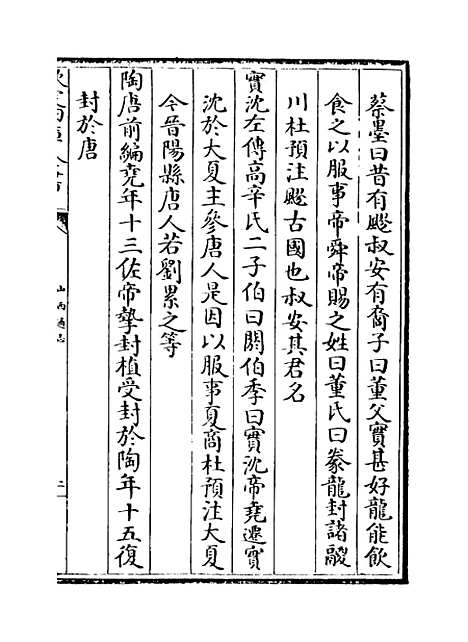 蔡墨曰昔有飂叔安有裔子曰董父實甚好龍能飲
食之以服事帝舜帝賜之姓曰董氏曰豢龍封諸鬷
川杜預注飂古國也叔安其君名
實沈左傳高辛氏二子伯曰閼伯季曰實沈帝堯遷實
沈於大夏主參唐人是因以服事夏商杜預注大夏
今晉陽縣唐人若劉累之等
陶唐前編堯年十三佐帝摯封植受封於陶年十五復
封於唐
山西通志